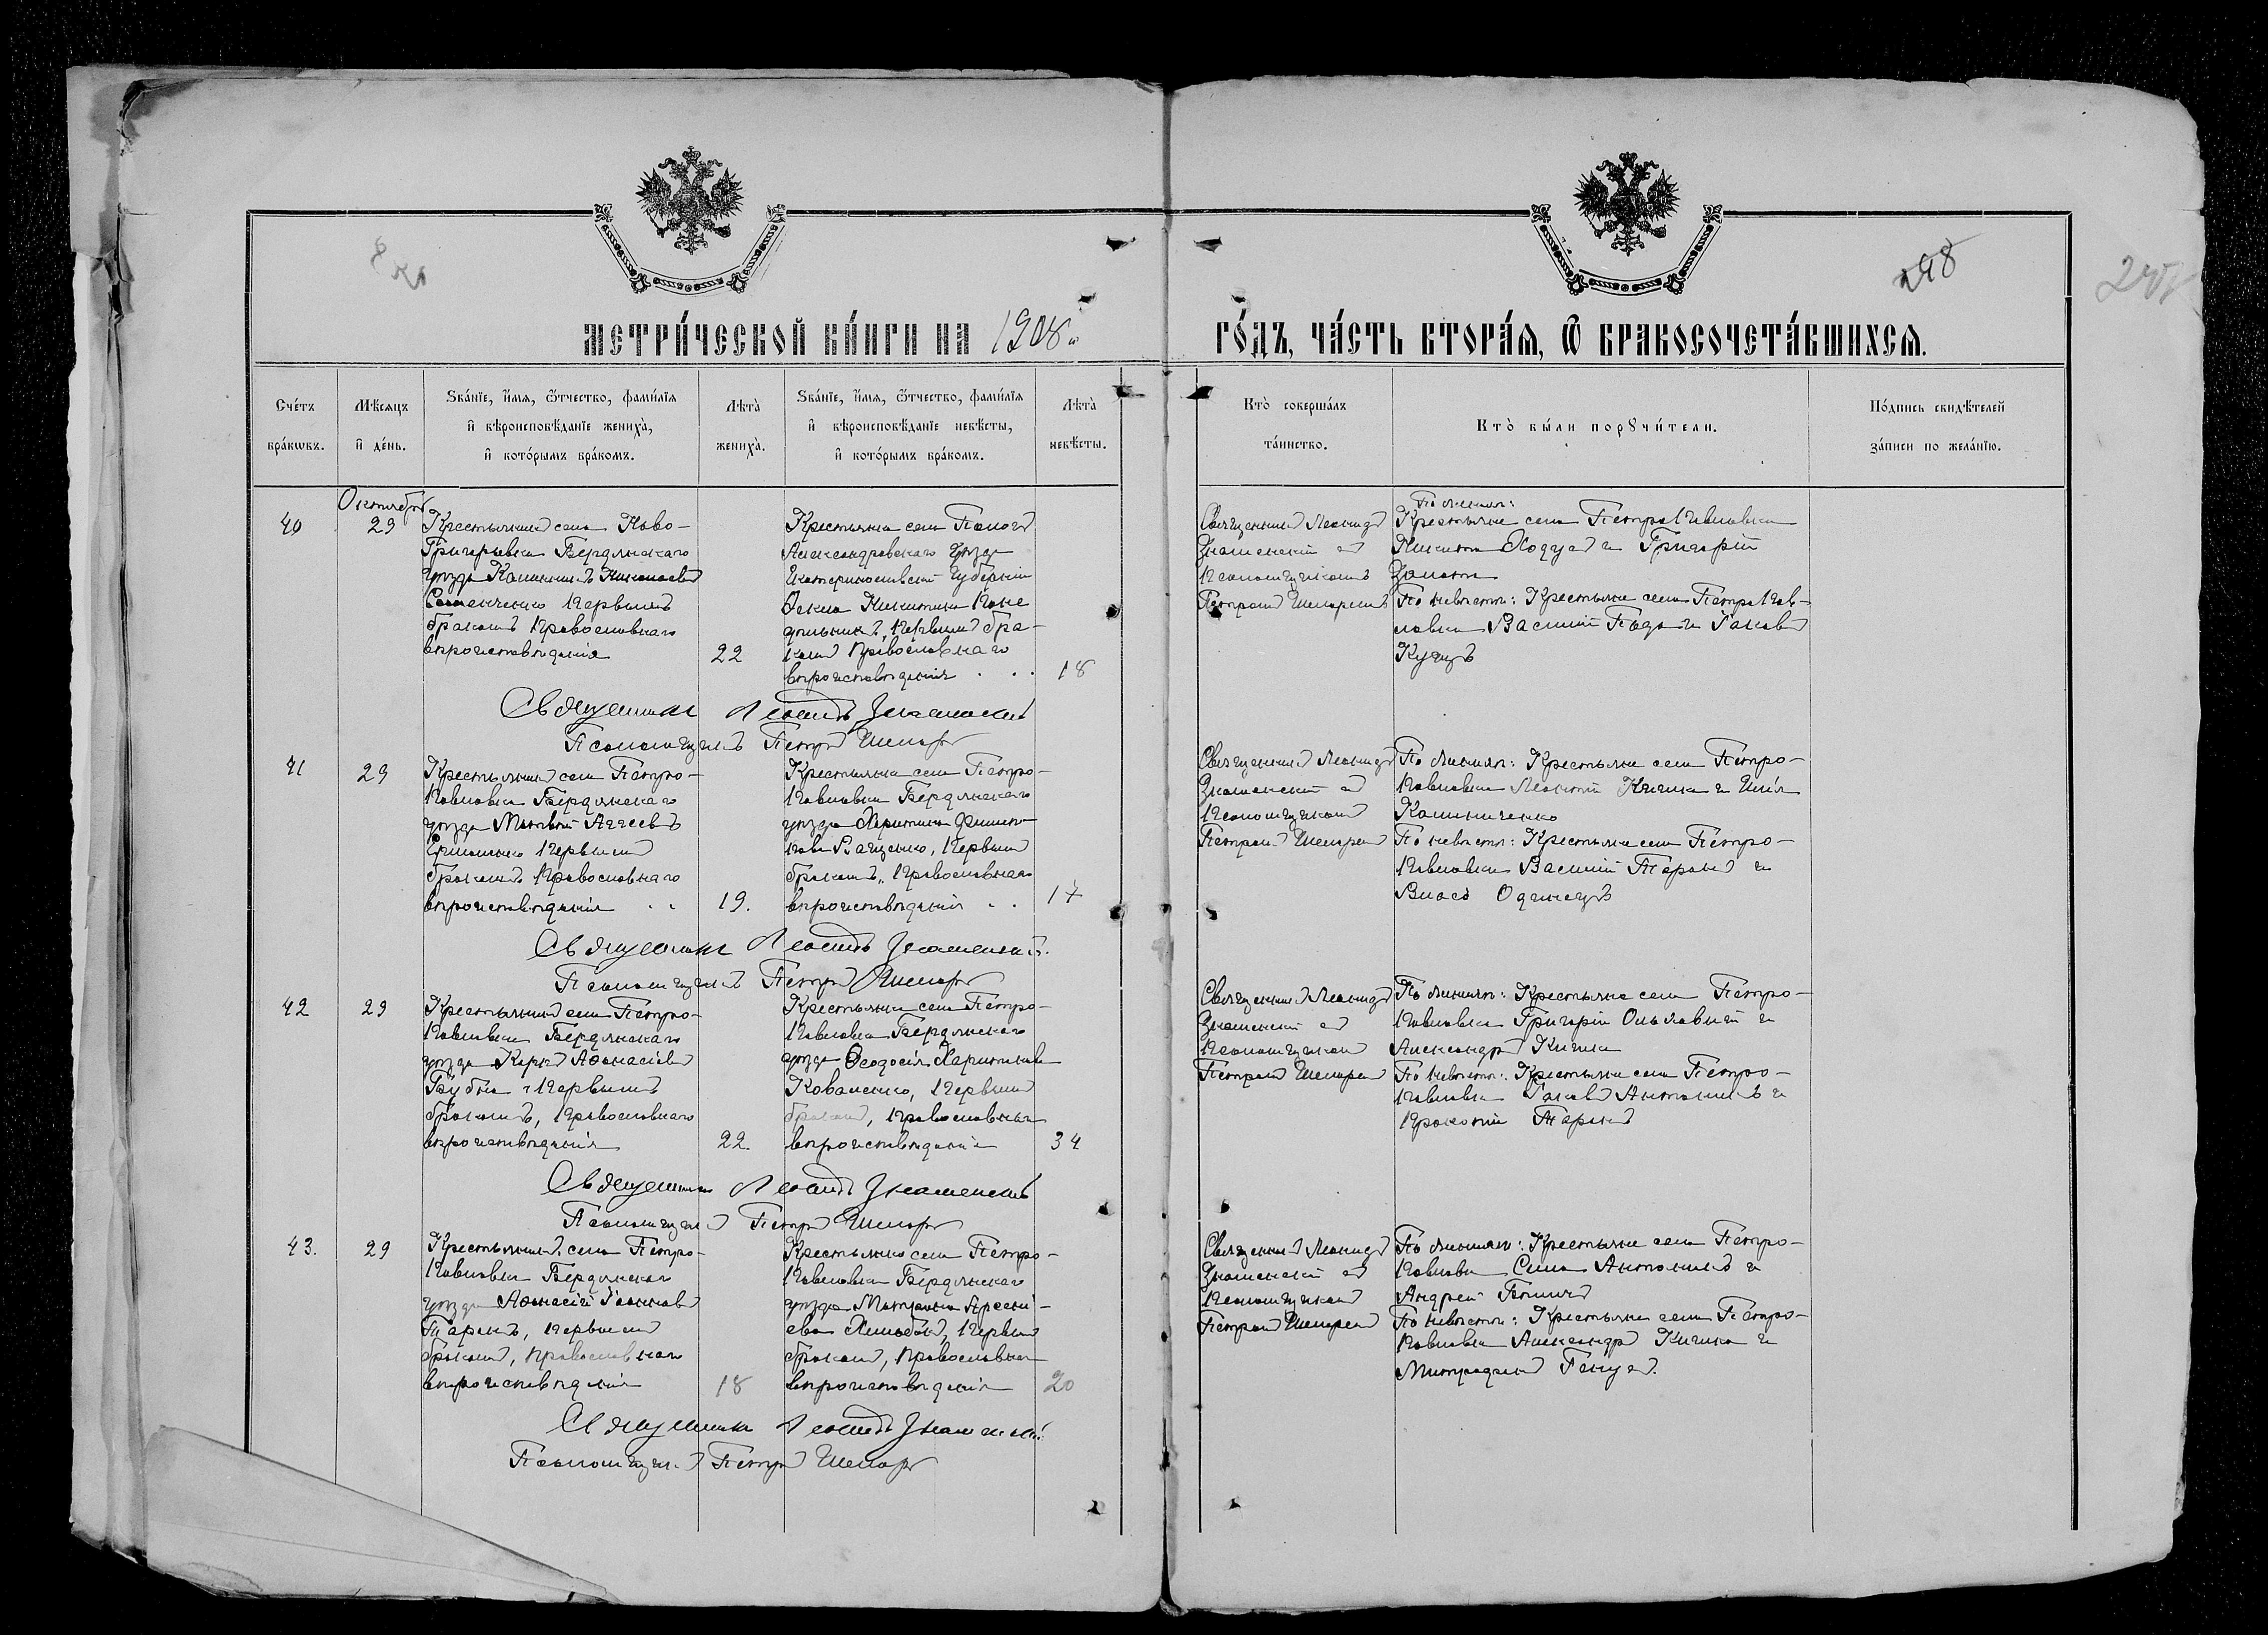 МЕТРИ́ЧЕСКОЙ КНИ́ГИ НА 1908 й
ГО́ДЪ, ЧА́СТЬ ВТОРА́Я, Ѿ БРАКОСОЧЕТА́ВШИХСЯ.
298
Сче́тъ
бра́кѡвъ.
Мѣ́сяцъ
и҆ де́нь.
Ѕва́нїе, и҆́мѧ, ѻ҆́тчество, фами́лїѧ
и҆ вѣроисповѣ́данїе жениха̀,
и҆ кото́рымъ бра́комъ.
Лѣта̀
жениха̀.
Ѕва́нїе, и҆́мѧ, ѻ҆́тчество, фами́лїѧ
и҆ вѣроисповѣ́данїе невѣ́сты,
и҆ кото́рымъ бра́комъ.
Лѣта̀
невѣ́сты.
Кто̀ соверша́лъ
та́инство.
Кто̀ бы́ли порꙋчи́тели.
По́дпись свидѣ́телей
за́писи по жела́нїю.
40
Октября
29
Крестьянинъ села Ново-
Григорьевки Бердянскаго
уѣзда Калинникъ Николаевъ
Семенченко первымъ
бракомъ православнаго
вѣроисповѣданія
22
Крестьянка села
Александровскаго уѣзда
Екатеринославской губерніи
Никитина
первымъ бра-
комъ православнаго
вѣроисповѣданія . . .
18
Священникъ Леонидъ
Знаменскій съ
псаломщикомъ
Петромъ
По женихѣ:
Крестьяне села Петропавловки
Никита Ходусъ и Григорій
По невѣстѣ: Крестьяне села Петропав-
ловки Василій и Іаковъ
Купецъ
Священникъ Леонидъ Знаменскій
Псаломщикъ Петръ
41
29
Крестьянинъ села Петро-
павловки Бердянскаго
уѣзда Матвѣй Аггеевъ
Ермоленко первымъ
бракомъ православнаго
вѣроисповѣданія . .
19.
Крестьянка села Петро-
павловки Бердянскаго
уѣзда Харитина Филип-
пова Ващенко, первымъ
бракомъ, православнаго
вѣроисповѣданія . .
17
Священникъ Леонидъ
Знаменскій съ
псаломщикомъ
Петромъ
По женихѣ: Крестьяне села Петро-
павловки Леонтій Кичка и Илія
Калиниченко
По невѣстѣ: Крестьяне села Петро-
павловки Василій Таранъ и
Власъ Одинецъ
Священникъ Леонидъ Знаменскій.
Псаломщикъ Петръ
42
29
Крестьянинъ села Петро-
павловки Бердянскаго
уѣзда Карпъ Аѳанасіевъ
первымъ
бракомъ, православнаго
вѣроисповѣданія
22.
Крестьянка села Петро-
павловки Бердянскаго
уѣзда Ѳеодосія Харитинова
Коваленко, первымъ
бракомъ, православнаго
вѣроисповѣданія
34
Священникъ Леонидъ
Знаменскій съ
псаломщикомъ
Петромъ
По женихѣ: Крестьяне села Петро-
павловки Григорій и
Александръ Кичка
По невѣстѣ: Крестьяне села Петро-
павловки Іаковъ и
Прокопій Таранъ
Священникъ Леонидъ Знаменскій
Псаломщикъ Петръ
43.
29
Крестьянинъ села Петро-
павловки Бердянскаго
уѣзда Аѳанасій Іоанновъ
Таранъ, первымъ
бракомъ, православнаго
вѣроисповѣданія
18
Крестьянка села Петро-
павловки Бердянскаго
уѣзда Матрона Арсені-
ева первымъ
бракомъ, православнаго
вѣроисповѣданія
20
Священникъ Леонидъ
Знаменскій съ
псаломщикомъ
Петромъ
По женихѣ: Крестьяне села Петро-
павловки Сила и
Андрей
По невѣстѣ: Крестьяне села Петро-
павловки Александръ Кичка и
Митрофанъ
Священникъ Леонидъ Знаменскій
Псаломщикъ Петръ